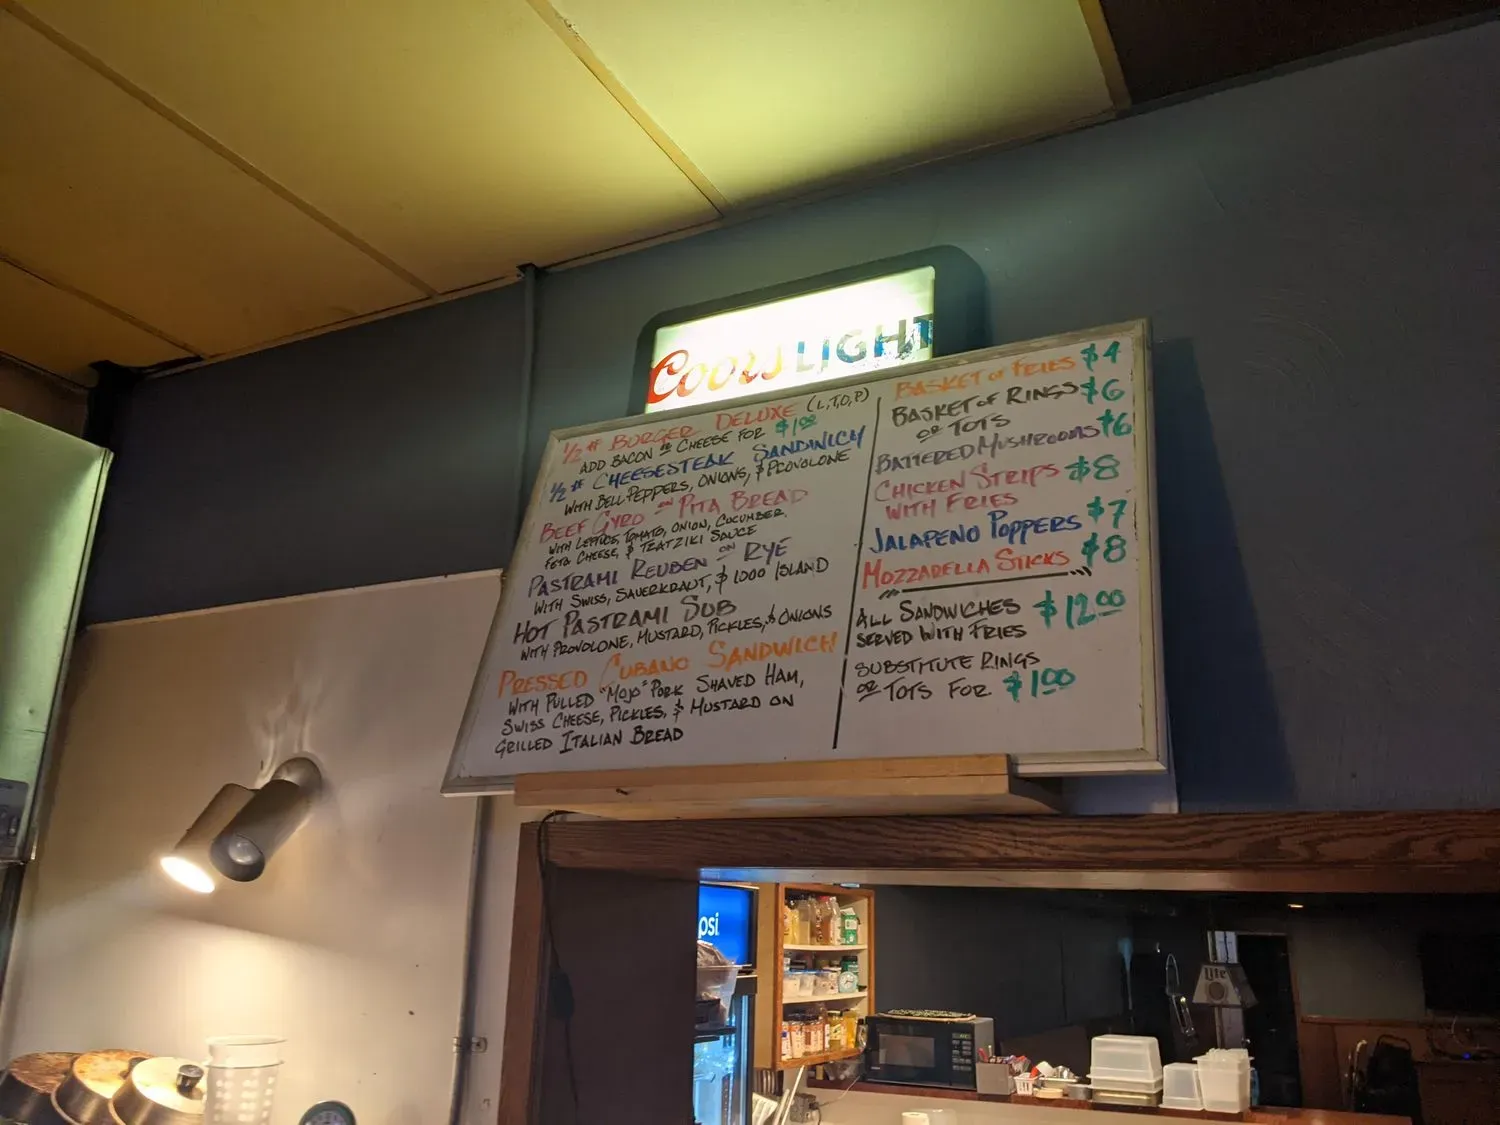 Coors LIGHT
1/2 # BURGER DELUXE (L,T,O,P)
ADD BACON OR CHEESE FOR $1.00
1/2 # CHEESESTEAK SANDWICH
WITH BELL PEPPERS, ONIONS, & PROVOLONE
BEEF GYRO ON PITA BREAD
WITH LETTUCE, TOMATO, ONION, CUCUMBER,
FETA CHEESE, & TZATZIKI SAUCE
PASTRAMI REUBEN ON RYE
WITH SWISS, SAUERKRAUT, & 1000 ISLAND
HOT PASTRAMI SUB
WITH PROVOLONE, MUSTARD, PICKLES, & ONIONS
PRESSED CUBANO SANDWICH
WITH PULLED "MOJO" PORK SHAVED HAM,
SWISS CHEESE, PICKLES, & MUSTARD ON
GRILLED ITALIAN BREAD
BASKET OF FRIES $4
BASKET OF RINGS $6
OR TOTS
BATTERED MUSHROOMS $6
CHICKEN STRIPS $8
WITH FRIES
JALAPENO POPPERS $7
MOZZARELLA STICKS $8
ALL SANDWICHES $12.00
SERVED WITH FRIES
SUBSTITUTE RINGS
OR TOTS FOR $1.00
psi
Lite